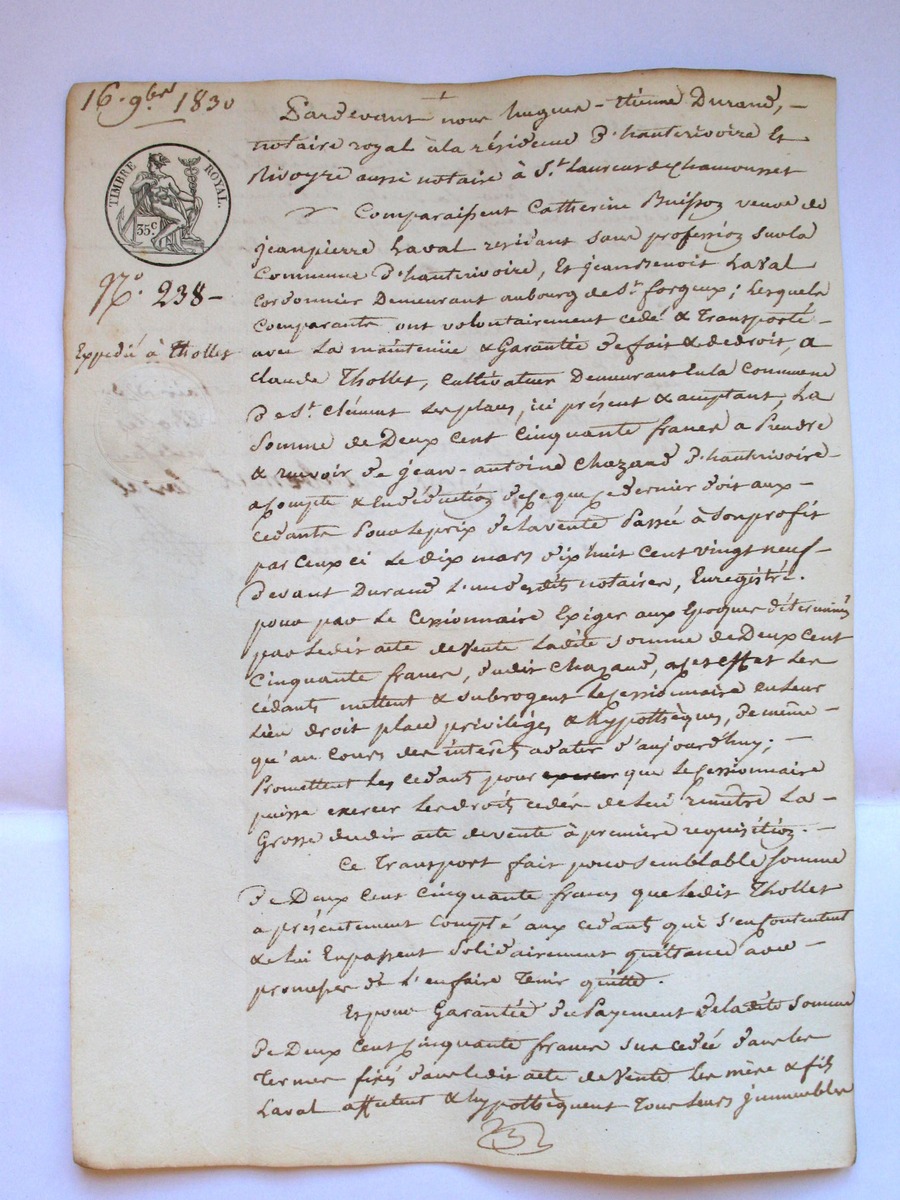 16. 9bre 1830
TIMBRE ROYAL.
35c
No. 238 -
Expedié à Thollet
Pardevant nous hugues - Etienne Durand, -
notaire royal à la résidence d'hauterivoire Et
Rivoyre aussi notaire à St. Laurens de Chamousset
Comparaissent Catherine Buisson veuve de
jeanpierre Laval residant sans profession sur la
Commune d'hauterivoire, Et jean Benoit Laval
Cordonnier Demeurant au bourg de St. forgeux; Lesquels
Comparants ont volontairement cedé & Transporté -
avec La maintenüe & Garantie de fait & de droit, a
claude Thollet, Cultivateur Demeurant en la Commune
De St. Clément Les places, ici présent & aceptant, La
Somme de Deux Cent Cinquante francs a Prendre
& recevoir de jean - antoine Chazaud d'hauterivoire -
acompte & En déduction de ce que ce dernier doit aux -
cedants Pour le prix de la vente Passée à son profit
par Ceux ci Le dix mars dix huit Cent vingt neuf -
Devant Durand L'un desdits notaires, Enregistré.
pour par Le Cessionnaire Exiger aux Epoques déterminés
par Ledit acte de vente Ladite somme de Deux Cent
Cinquante francs, dudit Chazaud, a cet effet Les
cédants mettent & subrogent Le cessionnaire en Leur
Lieu droit place privilèges & hypothèques, de même -
qu'au Cours des intérêts a dater d'aujourd'huy; -
Promettent Les cedants pour exercer que Le cessionnaire
puisse exercer Les droits cedés de Lui remettre La -
Grosse dudit acte de vente à première requisition. -
Ce Transport fait pour semblable Somme
De Deux Cent Cinquante francs que Ledit Thollet
a présentement Compté aux cedants qui s'en Contentent
& Lui En passent Solidairement quittance avec -
promesse de L'en faire Tenir quitte.
Et pour Garantie du Payement de ladite Somme
De Deux Cent Cinquante francs sus cedée dans les
Termes fixés dans ledit acte de vente Les mère & fils
Laval affectent & hypothèquent Tous leurs jmmeubles